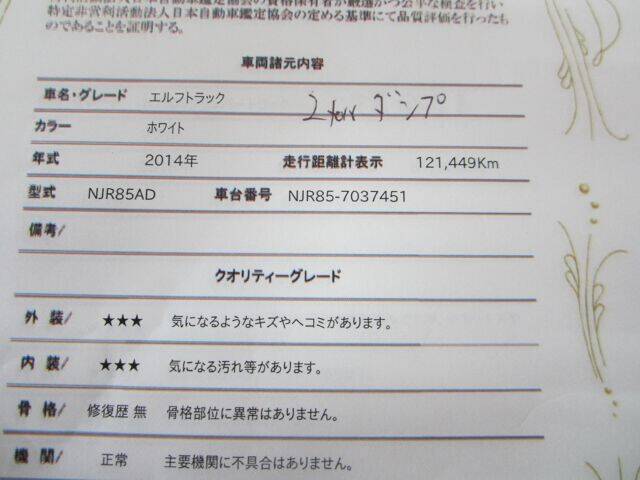 特定非営利活動法人日本自動車鑑定協会の定める基準にて品質評価を行ったも
のであることを証明する。
車両諸元内容
車名・グレード エルフトラック ダンプ
カラー ホワイト
年式 2014年 走行距離計表示 121,449Km
型式 NJR85AD 車台番号 NJR85-7037451
備考/
クオリティーグレード
外 装/ ★★★ 気になるようなキズやヘコミがあります。
内 装/ ★★★ 気になる汚れ等があります。
骨 格/ 修復歴 無 骨格部位に異常はありません。
機 関/ 正常 主要機関に不具合はありません。